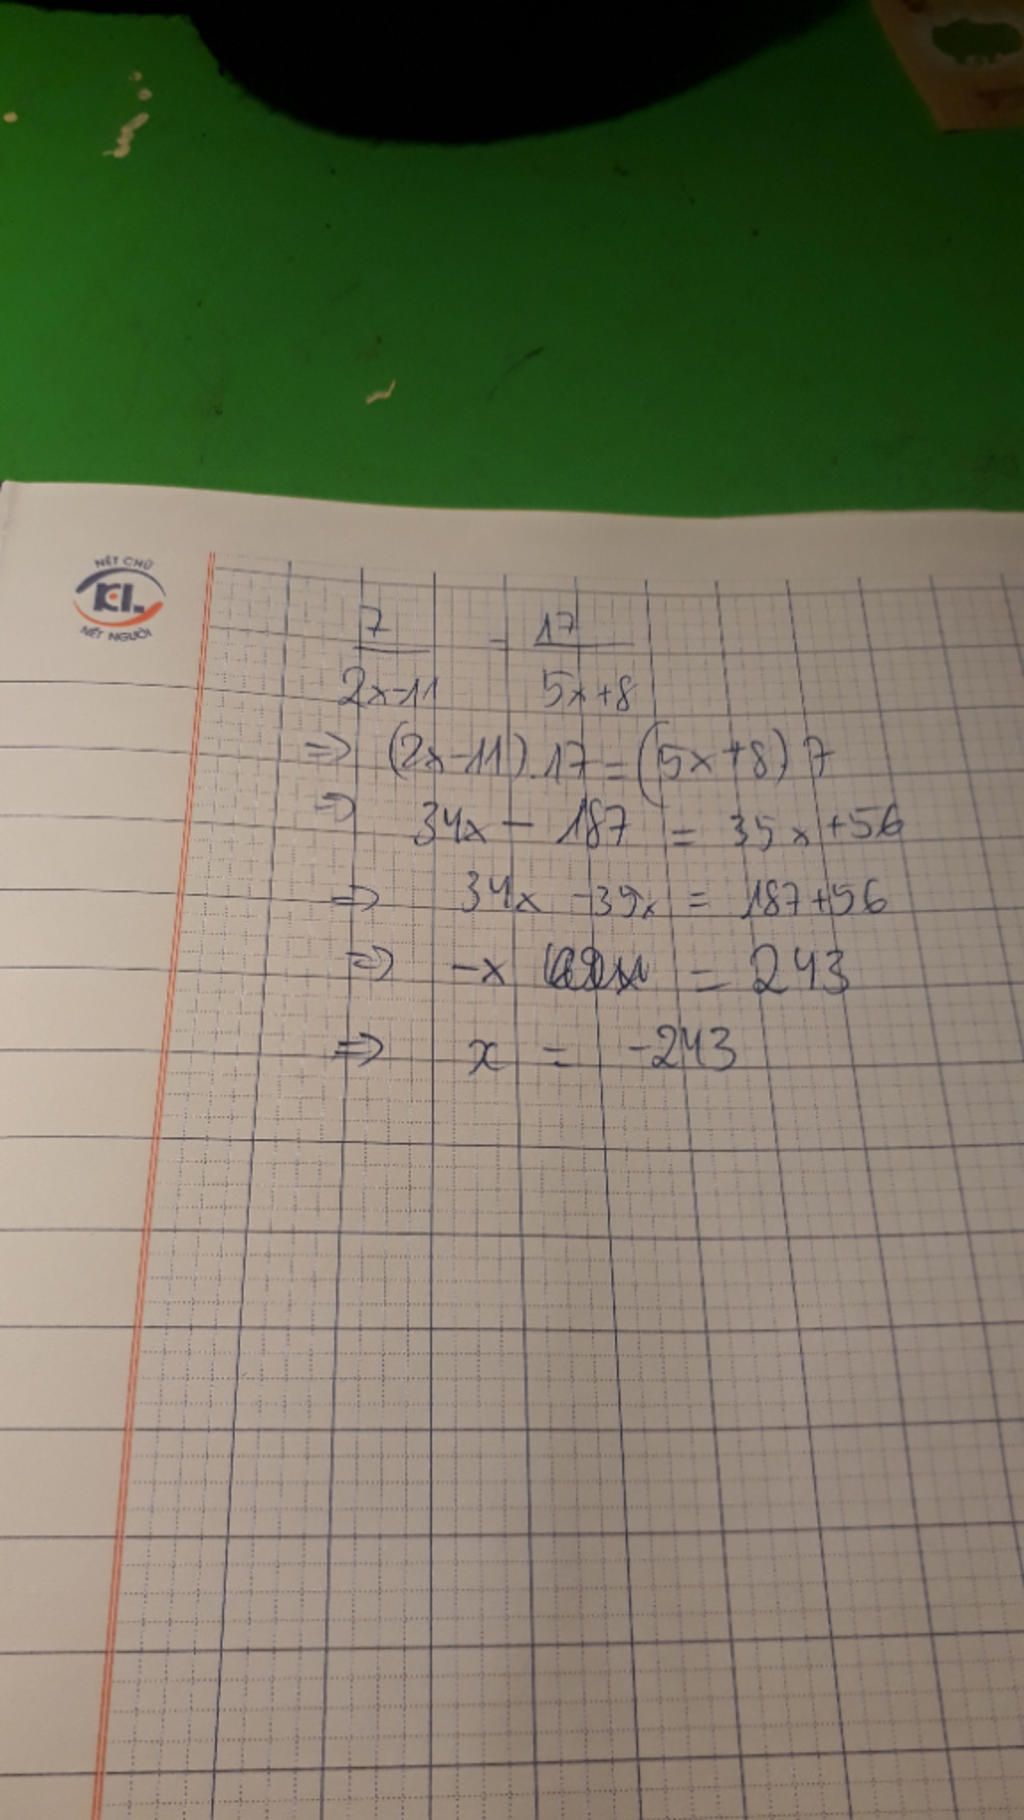 NÉT CHỮ
KL.
NẾT NGƯỜI
7/(2x-11) = 17/(5x+8)
=> (2x-11).17=(5x+8)7
=> 34x - 187 = 35x+56
=> 34x -35x = 187+56
=> -x = 243
=> x = -243